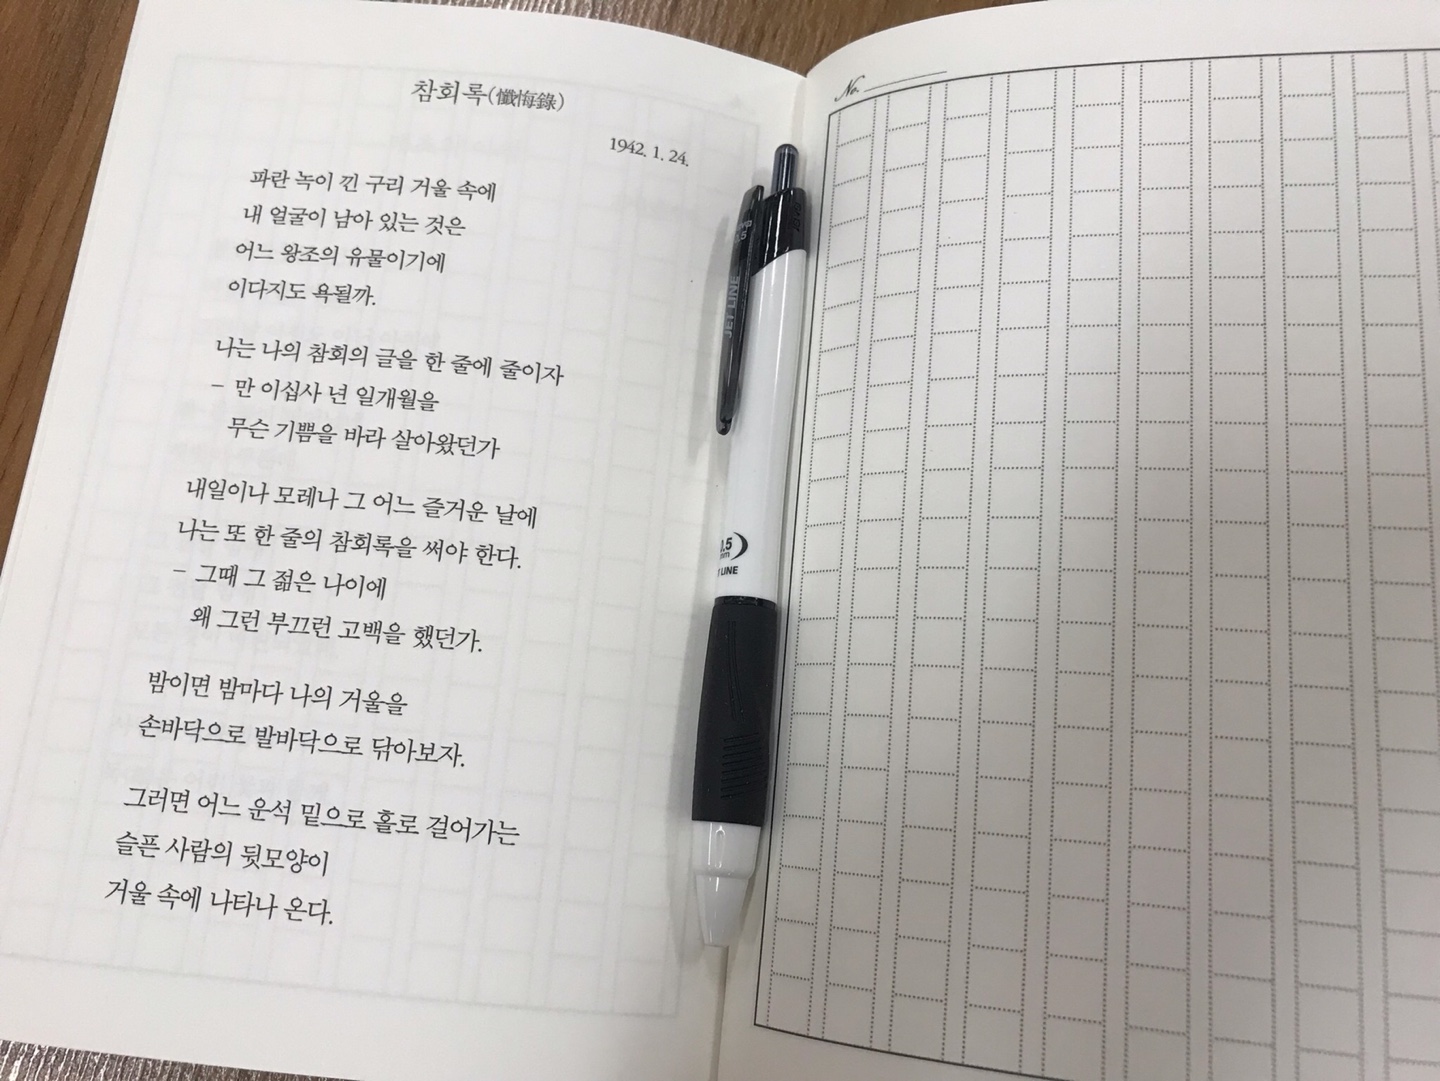 참회록(懺悔錄)
1942. 1. 24.
파란 녹이 낀 구리 거울 속에
내 얼굴이 남아 있는 것은
어느 왕조의 유물이기에
이다지도 욕될까.
나는 나의 참회의 글을 한 줄에 줄이자
- 만 이십사 년 일개월을
무슨 기쁨을 바라 살아왔던가
내일이나 모레나 그 어느 즐거운 날에
나는 또 한 줄의 참회록을 써야 한다.
- 그때 그 젊은 나이에
왜 그런 부끄런 고백을 했던가.
밤이면 밤마다 나의 거울을
손바닥으로 발바닥으로 닦아보자.
그러면 어느 운석 밑으로 홀로 걸어가는
슬픈 사람의 뒷모양이
거울 속에 나타나 온다.
JET LINE
0.5
mm
LINE
No.